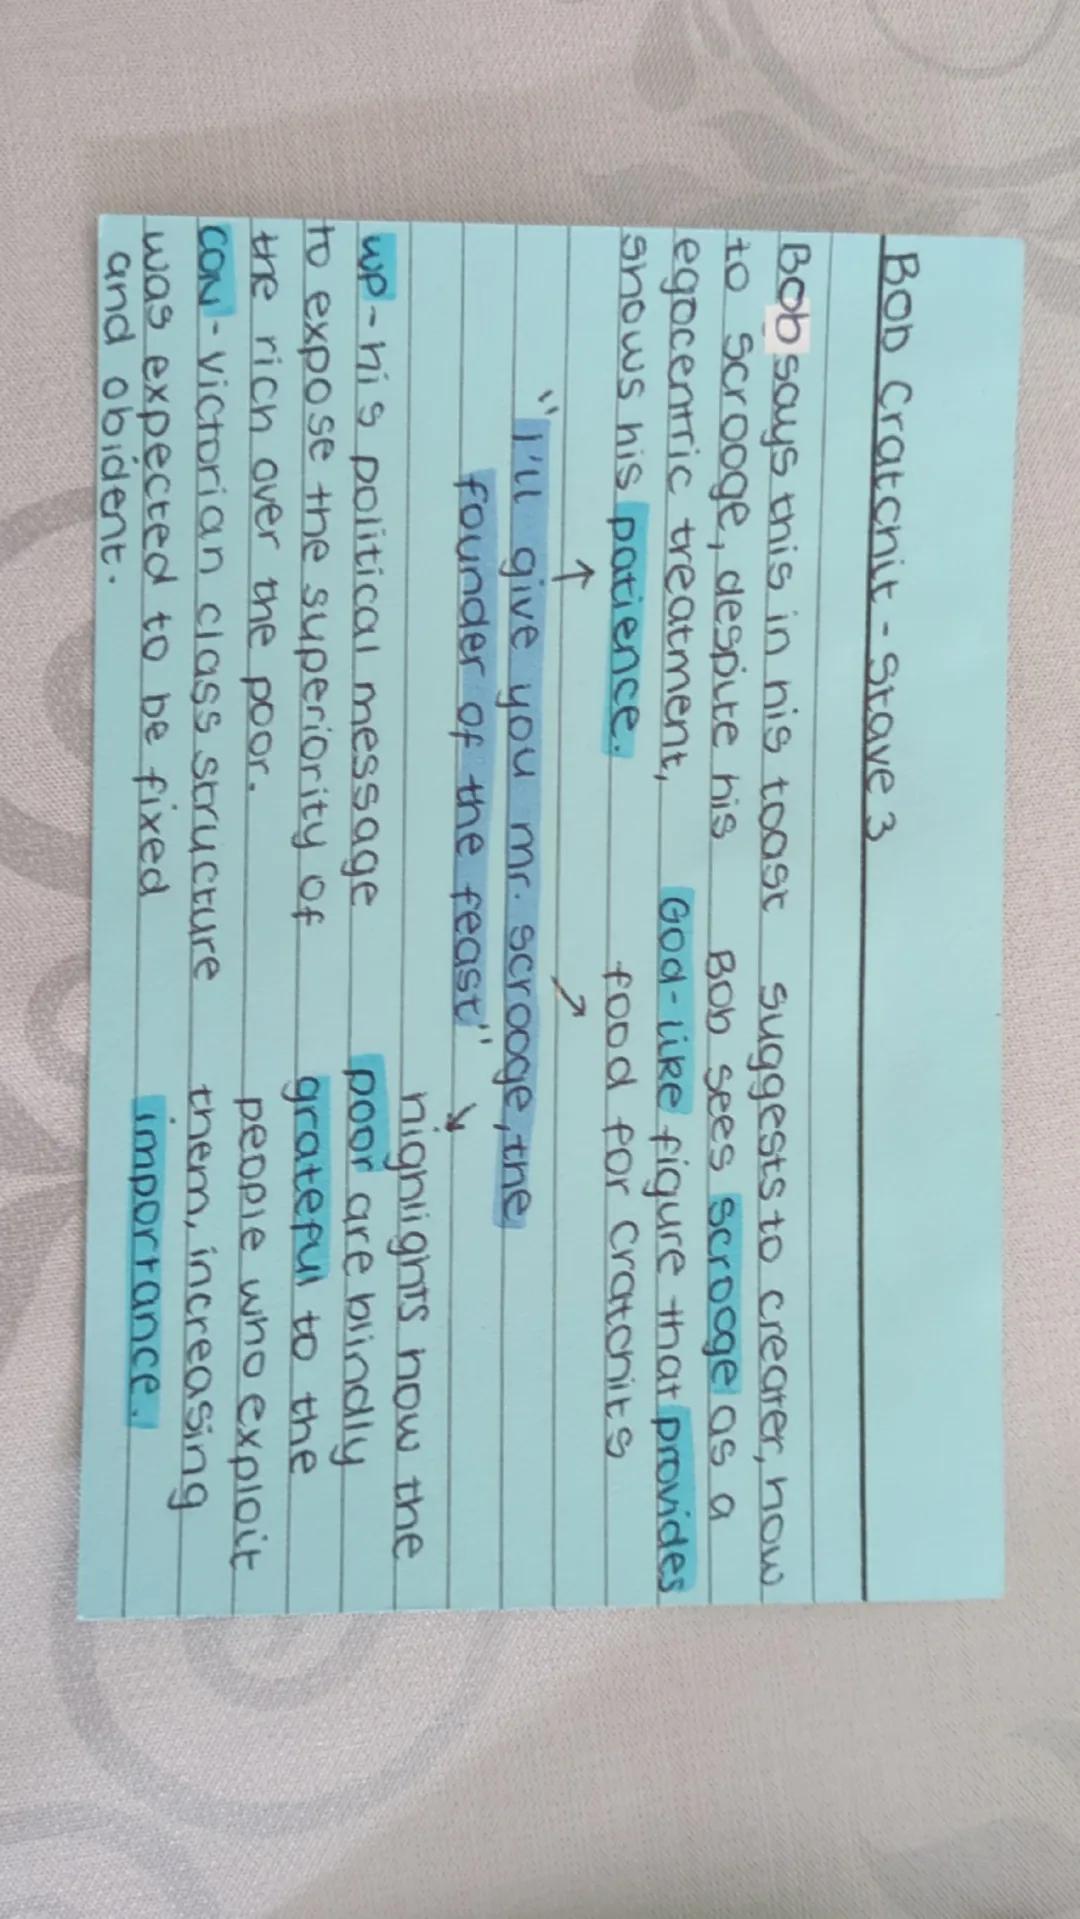 Bob Cratchit - Stave 3
Bob says this in his toast
to scrooge, despite his
egocentric treatment,
shows his patience.
suggests to creater, how
Bob sees scrooge as a
God-like figure that provides
food for cratchits
"I'll give you mr. scrooge, the
founder of the feast"
wp - his political message
to expose the superiority of
the rich over the poor.
con - victorian class structure
was expected to be fixed
and obident.
highlights how the
poor are blindly
grateful to the
people who exploit
them, increasing
importance.